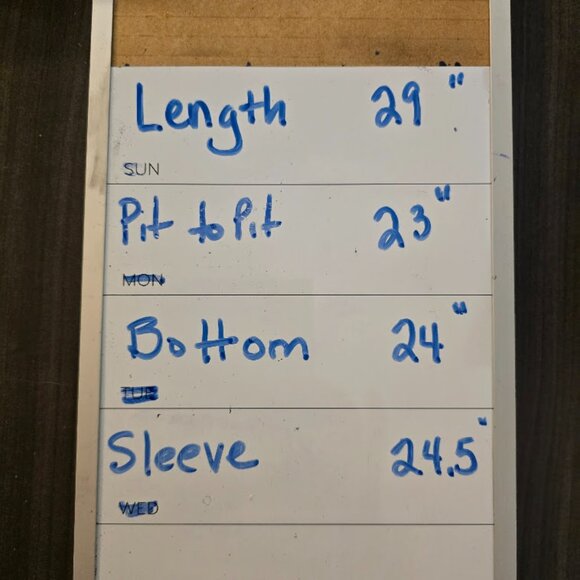 Length 29"
SUN
Pit to Pit 23"
MON
Bottom 24"
TUE
Sleeve 24.5"
WED